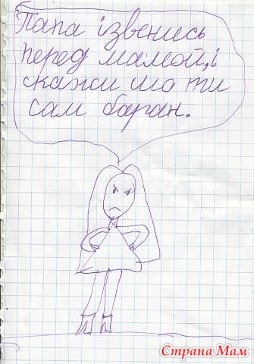 Папа ізвенись
перед мамой, і
скажи шо ти
сам баран.
Страна Мам